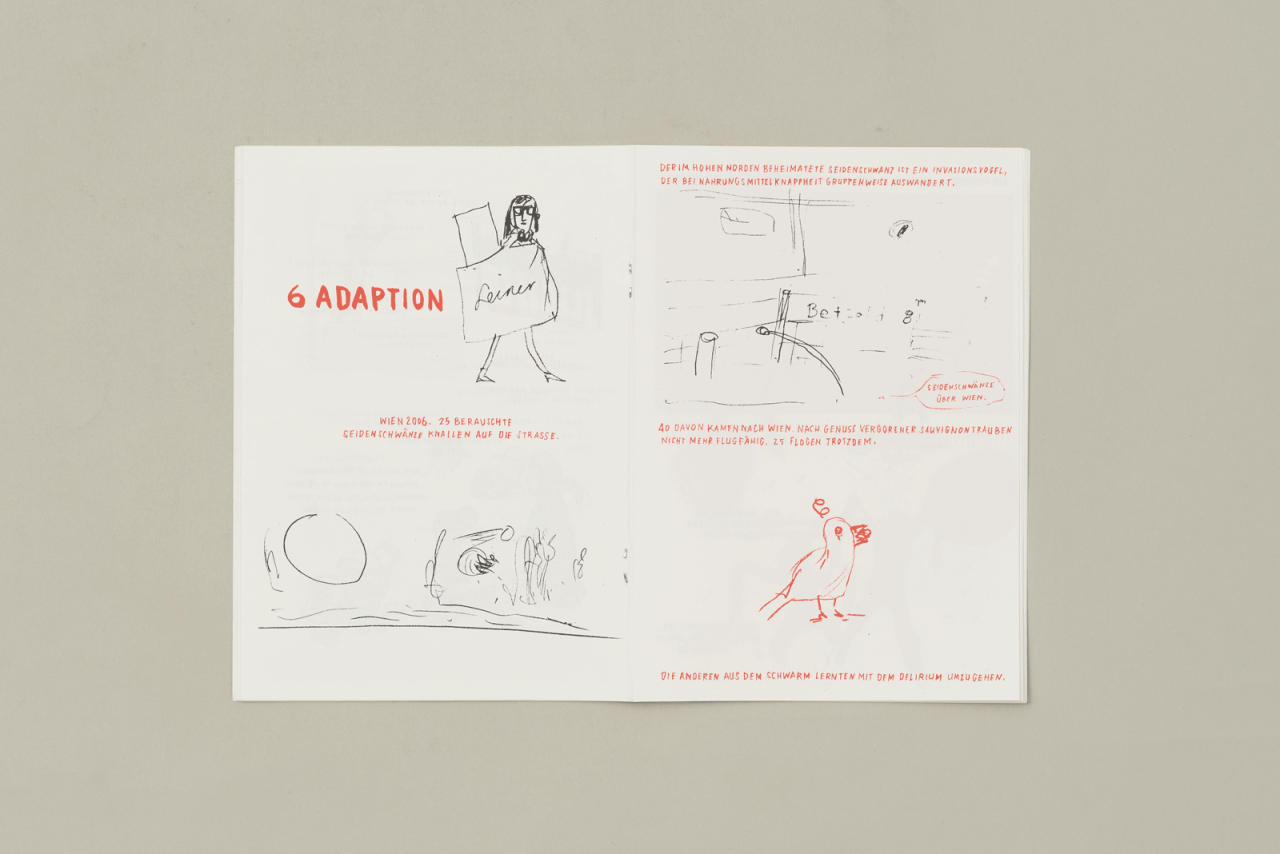 6 ADAPTION
Leiner
WIEN 2006. 25 BERAUSCHTE
SEIDENSCHWÄNZE KNALLEN AUF DIE STRASSE.
DER IM HOHEN NORDEN BEHEIMATETE SEIDENSCHWANZ IST EIN INVASIONSVOGEL,
DER BEI NAHRUNGSMITTELKNAPPHEIT GRUPPENWEISE AUSWANDERT.
SEIDENSCHWÄNZE
ÜBER WIEN.
40 DAVON KAMEN NACH WIEN. NACH GENUSS VERGORENER SAUVIGNONTRAUBEN
NICHT MEHR FLUGFÄHIG. 25 FLOGEN TROTZDEM.
DIE ANDEREN AUS DEM SCHWARM LERNTEN MIT DEM DELIRIUM UMZUGEHEN.